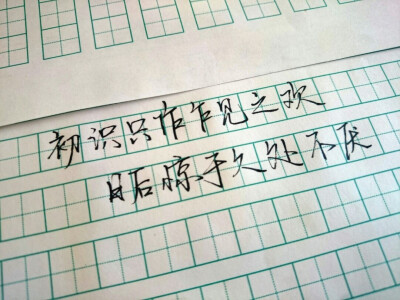 初识只作乍见之欢
日后惊于久处不厌